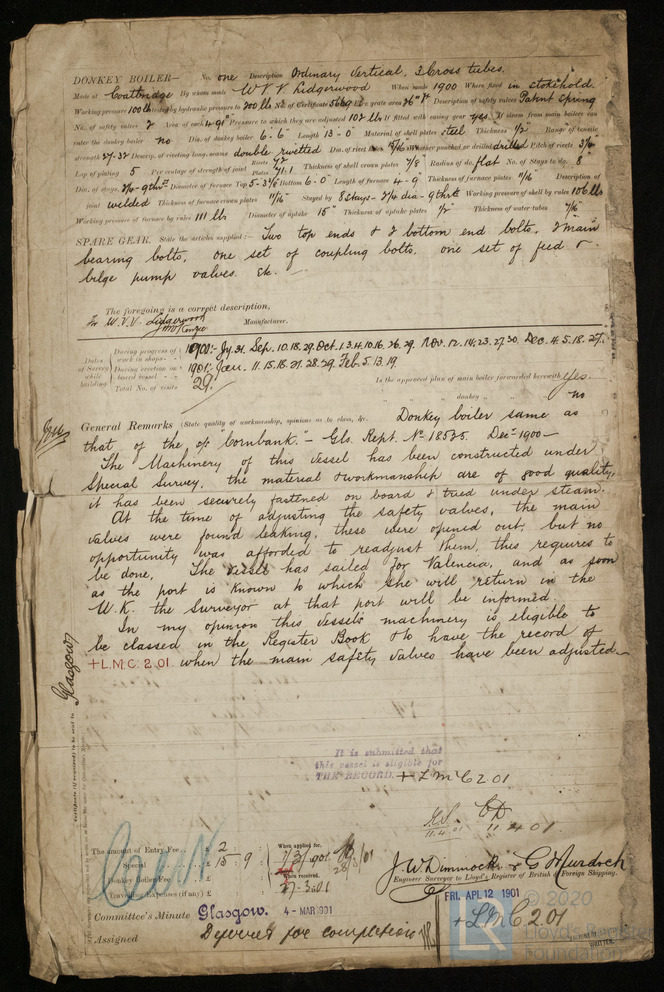 DONKEY BOILER— No. one Description Ordinary Vertical, 2 Cross tubes.
Made at Coatbridge By whom made W V V Lidgerwood When made 1900 Where fixed in stokehold.
Working pressure 100 lb tested by hydraulic pressure to 200 lbs No. of Certificate 5669 Fire grate area Description of safety valves Patent Spring
No. of safety valves 2 Area of each 4.91" Pressure to which they are adjusted 102 lbs If fitted with easing gear yes If steam from main boilers can
enter the donkey boiler no Dia. of donkey boiler 6-6 Length 13-0 Material of shell plates steel Thickness 1/2" Range of tensile
strength 27-32 Descrip. of riveting long. seams double rivetted Dia. of rivet holes Whether punched or drilled drilled Pitch of rivets
Lap of plating 5 Per centage of strength of joint Rivets 72 Plates 71.1 Thickness of shell crown plates 7/8 Radius of do. flat No. of Stays to do. 8
Dia. of stays. Diameter of furnace Top 5-3 Bottom 6-0 Length of furnace 4-9 Thickness of furnace plates 11/16 Description of
joint welded Thickness of furnace crown plates 11/16 Stayed by 8 stays - dia - 9 thrds Working pressure of shell by rules 106 lbs
Working pressure of furnace by rules 111 lbs Diameter of uptake 15" Thickness of uptake plates 1/2 Thickness of water tubes 7/16
SPARE GEAR. State the articles supplied:— Two top ends & 2 bottom end bolts, 2 main
bearing bolts, one set of coupling bolts, one set of feed &
bilge pump valves. Etc.
The foregoing is a correct description,
For W.V.V. Lidgerwood Manufacturer.
Dates of Survey while building
During progress of work in shops - - 1900:- Jy. 31. Sep. 10. 18. 29. Oct. 1. 3. 4. 10. 16. 26. 29. Nov. 12. 14. 23. 27. 30. Dec. 4. 5. 18. 27.
During erection on board vessel - - - 1901:- Jan. 11. 15. 18. 21. 28. 29. Feb. 5. 13. 19.
Total No. of visits 29.
Is the approved plan of main boiler forwarded herewith yes
" " " donkey " " " no
General Remarks (State quality of workmanship, opinions as to class, &c. Donkey boiler same as
that of the s/s Cornbank. - Gls. Rept. No. 18525. Dec. 1900-
The Machinery of this Vessel has been constructed under
Special Survey, the material & workmanship are of good quality,
it has been securely fastened on board & tried under steam.
At the time of adjusting the safety valves, the main
valves were found leaking, these were opened out, but no
opportunity was afforded to readjust them, this requires to
be done, The vessel has sailed for Valencia, and as soon
as the port is known to which she will return in the
U.K. the Surveyor at that port will be informed.
In my opinion this Vessel's machinery is eligible to
be classed in the Register Book & to have the record of
+L.M.C. 2.01 when the main safety valves have been adjusted.
Glasgow
Certificate (if required) to be sent to
It is submitted that
this vessel is eligible for
THE RECORD. + LMC 2 01
11.4.01 11 4 01
The amount of Entry Fee . . £ 2
Special . . £ 13 : 9 :
Donkey Boiler Fee . . £
Travelling Expenses (if any) £
When applied for,
When received,
27-3-01
J. W. Dimmock & G. Murdoch
Engineer Surveyor to Lloyd's Register of British & Foreign Shipping.
Committee's Minute Glasgow. 4 - MAR 1901
Assigned Deferred for completion
FRI. APL 12 1901
+ LMC 2 01
© 2020
Lloyd's Register
Foundation